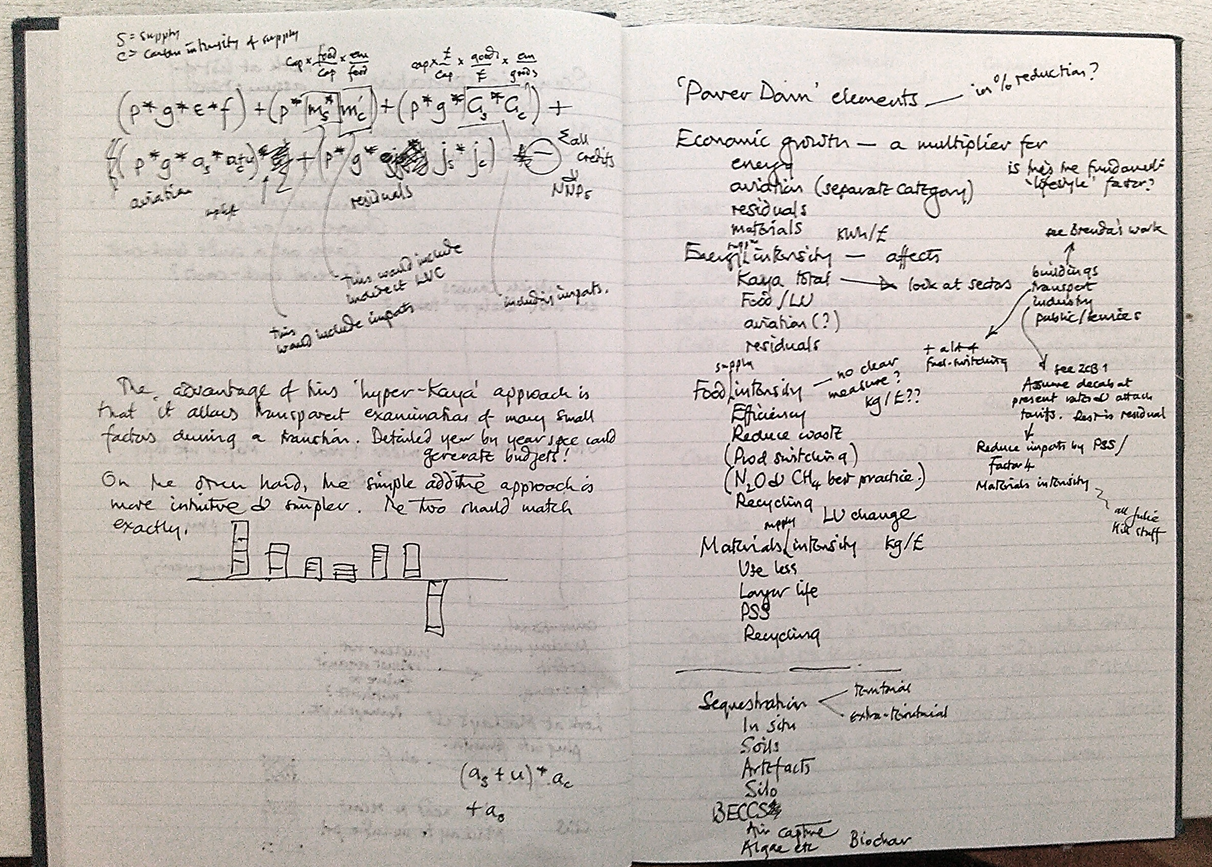 S = supply
C = Carbon intensity of supply
Cap × food/Cap × em/food
cap × £/cap × goods/£ × em/goods
(p * g * e * f) + (p * m_s * m_c) + (p * g * G_s * G_c) +
(p * g * a_s * a_c) + (p * g * j_s * j_c)
Σ all
credits
NNPs
aviation
uplift
residuals
this would include
indirect LUC
this
would include imports
including imports.
The advantage of this 'hyper-Kaya' approach is
that it allows transparent examination of many small
factors during a transition. Detailed year by year specs could
generate budgets!
On the other hand, the simple additive approach is
more intuitive & simpler. The two should match
exactly.
(a_s + u) * a_c
+ a_s
'Power Down' elements — in % reduction?
Economic growth — a multiplier for
energy
aviation (separate category)
residuals
materials
is this the fundamental
'lifestyle' factor?
kWh/£
Energy intensity — affects
Kaya total → look at sectors
Food / LU
aviation (?)
residuals
see Brenda's work
buildings
transport
industry
public/services
+ alt &
fuel-switching
see ZCB 1
Assume decarb at
present rates & attach
tariffs. Rest is residual
Reduce imports by PSS /
Factor 4
Materials intensity
all Julie
Hill stuff
supply
Food intensity — no clear
measure?
kg/£??
Efficiency
Reduce waste
(Prod switching)
(N₂O & CH₄ best practice.)
Recycling
LU change
supply
Materials intensity kg/£
Use less
Longer life
PSS
Recycling
Sequestration
territorial
extra-territorial
In situ
Soils
Artefacts
Silo
BECCS
Air capture
Algae etc Biochar